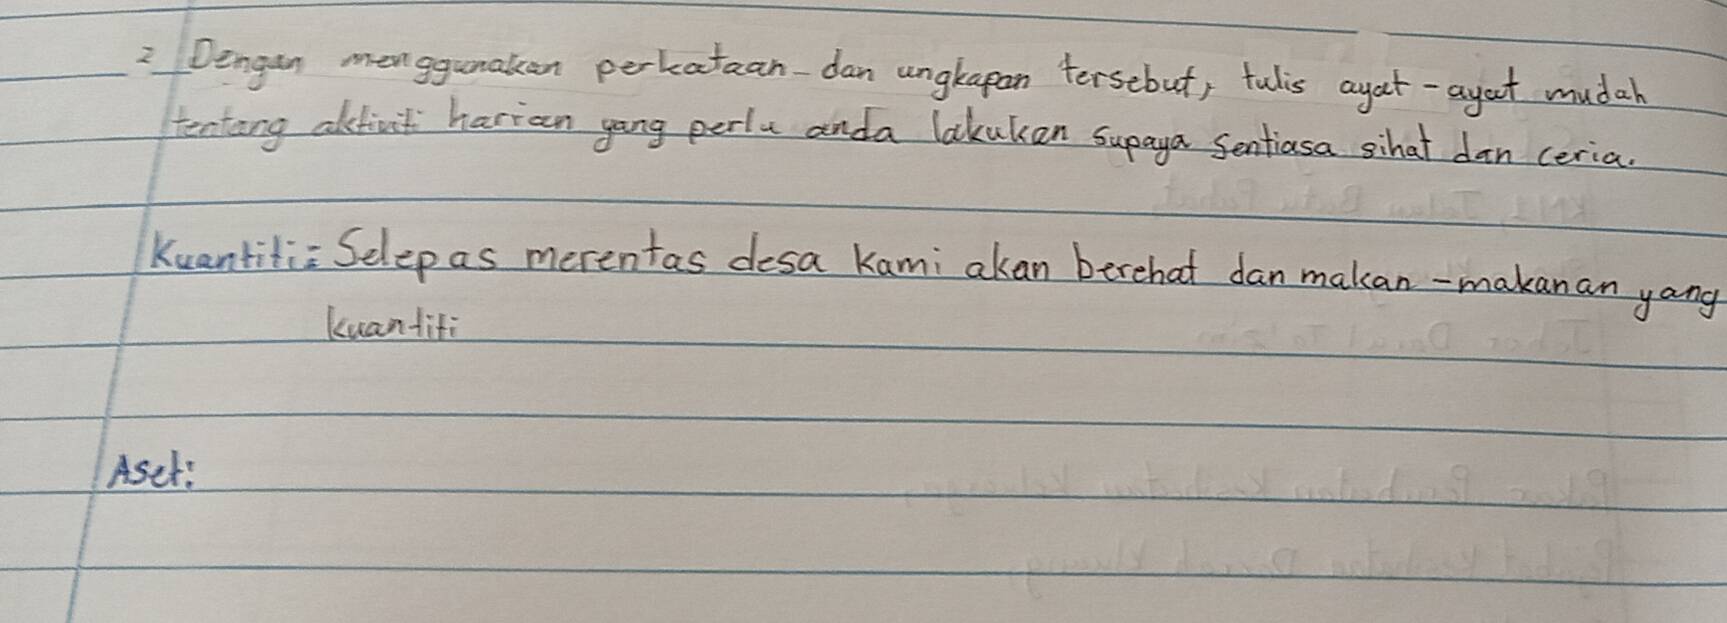 2 Dengan menggunakan perkataan-dan ungkapan tersebut, tulis ayat-ayat mudah
tentang aktiviti harian yang perlu anda lakukan supaya sentiasa sihat dan ceria.
Kuantiti: Selepas merentas desa kami akan berehat dan makan-makanan yang
kuantiti
Aset: